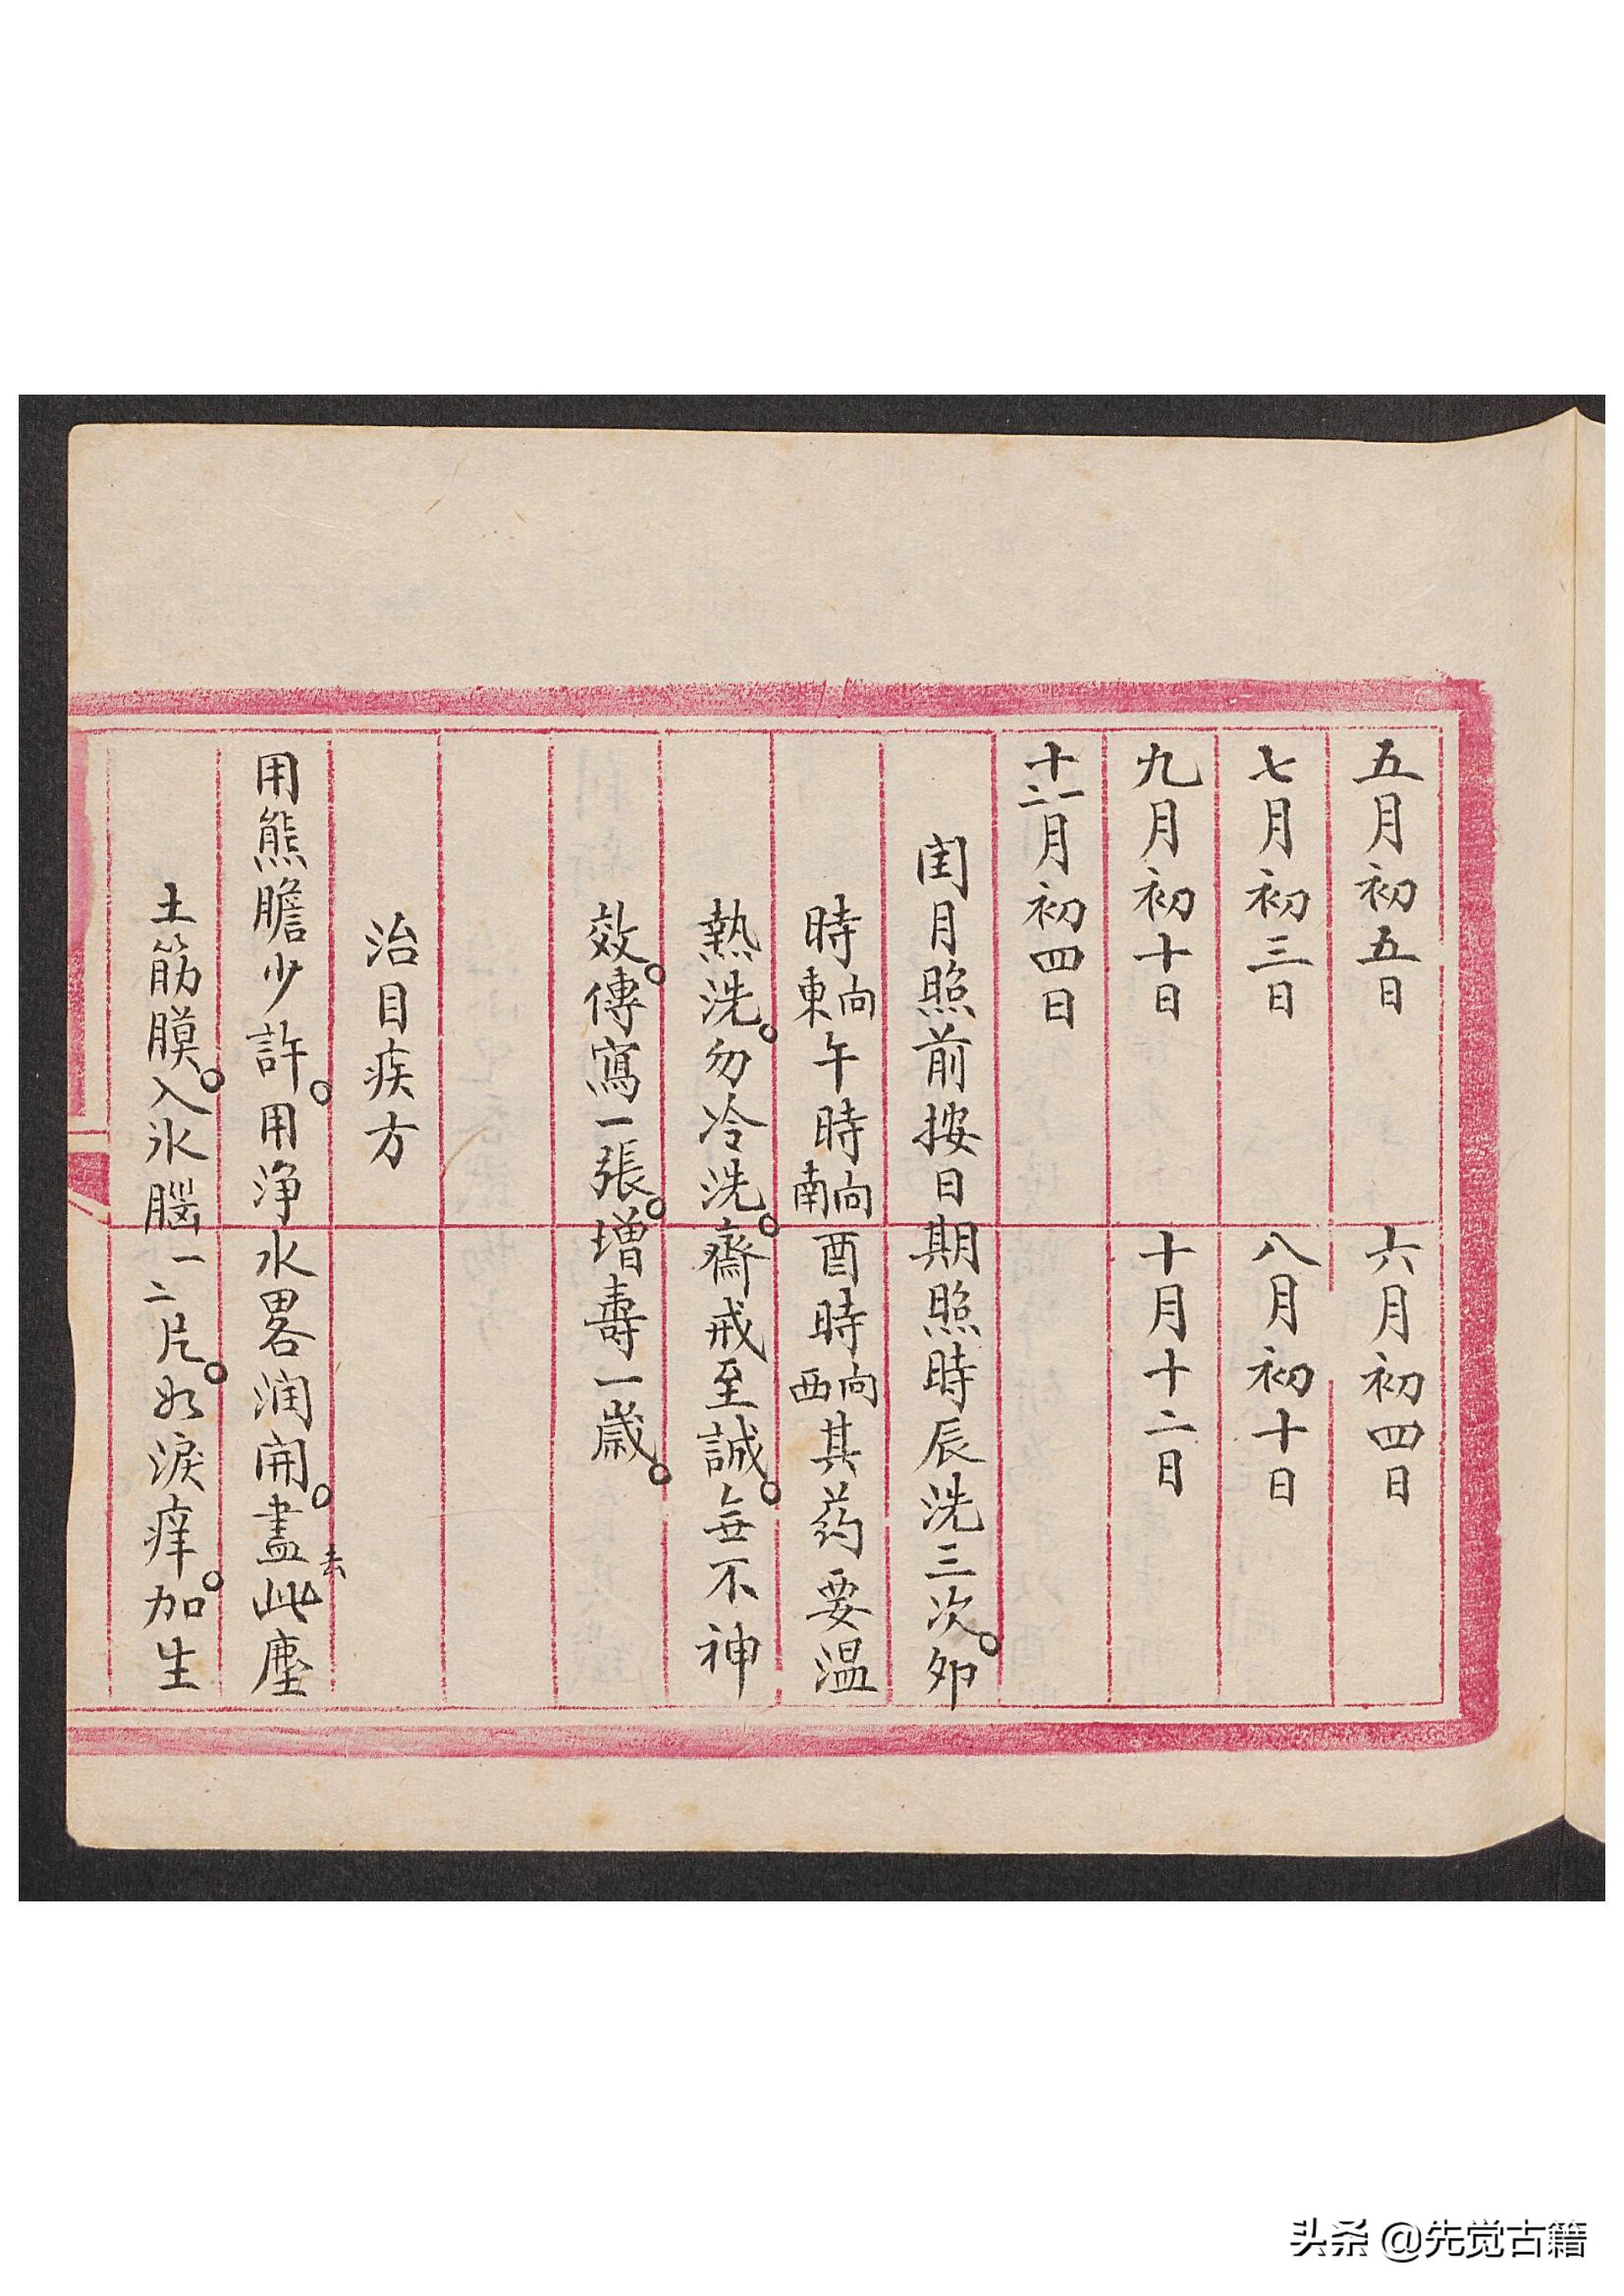 五月初五日　六月初四日
七月初三日　八月初十日
九月初十日　十月十二日
十一二月初四日
闰月照前按日期照時辰洗三次。卯
時向東午時向南酉時向西其药要温
熱洗。勿冷洗。齋戒至誠。無不神
效。傳寫一張。增壽一歲。
治目疾方
用熊膽少許。用淨水畧润開。盡去此塵
土筋膜。入氷腦一二片。如淚痒。加生
头条 @先觉古籍